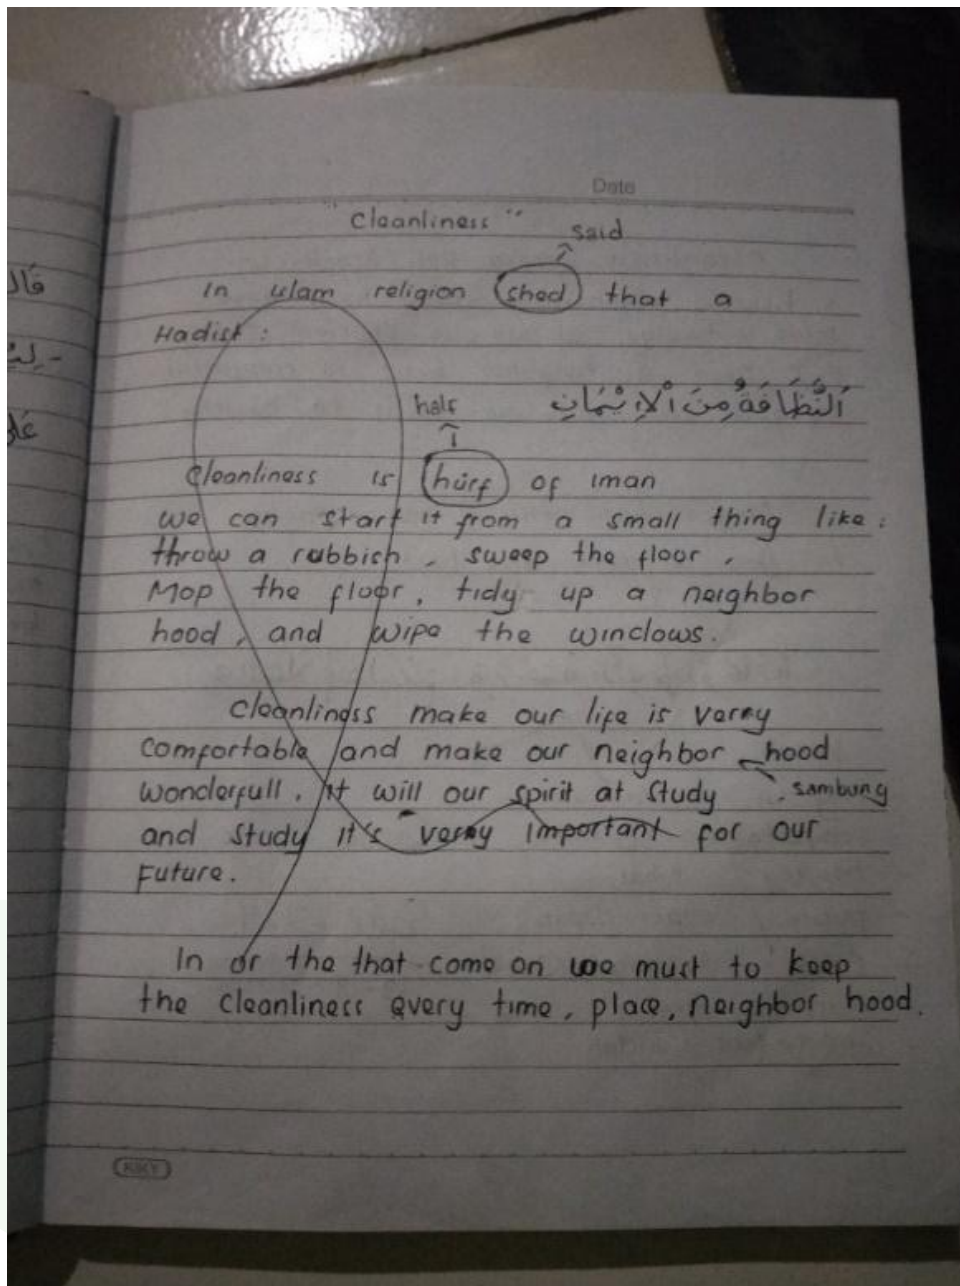 Date
"Cleanliness"
said
In ulam religion shed that a
Hadist :
half
اَلنَّظَافَةُ مِنَ اْلاِيْمَانِ
Cleanliness is hurf of iman
we can start it from a small thing like :
throw a rubbish , sweep the floor ,
Mop the floor , tidy up a neighbor
hood , and wipe the windows .
Cleanliness make our life is verry
comfortable and make our neighbor hood
wonderfull . it will our spirit at study
. sambung
and study it's verry important for our
Future .
In or the that come on we must to keep
the cleanliness every time , place , neighbor hood .
KKY
قَال
عَلَى